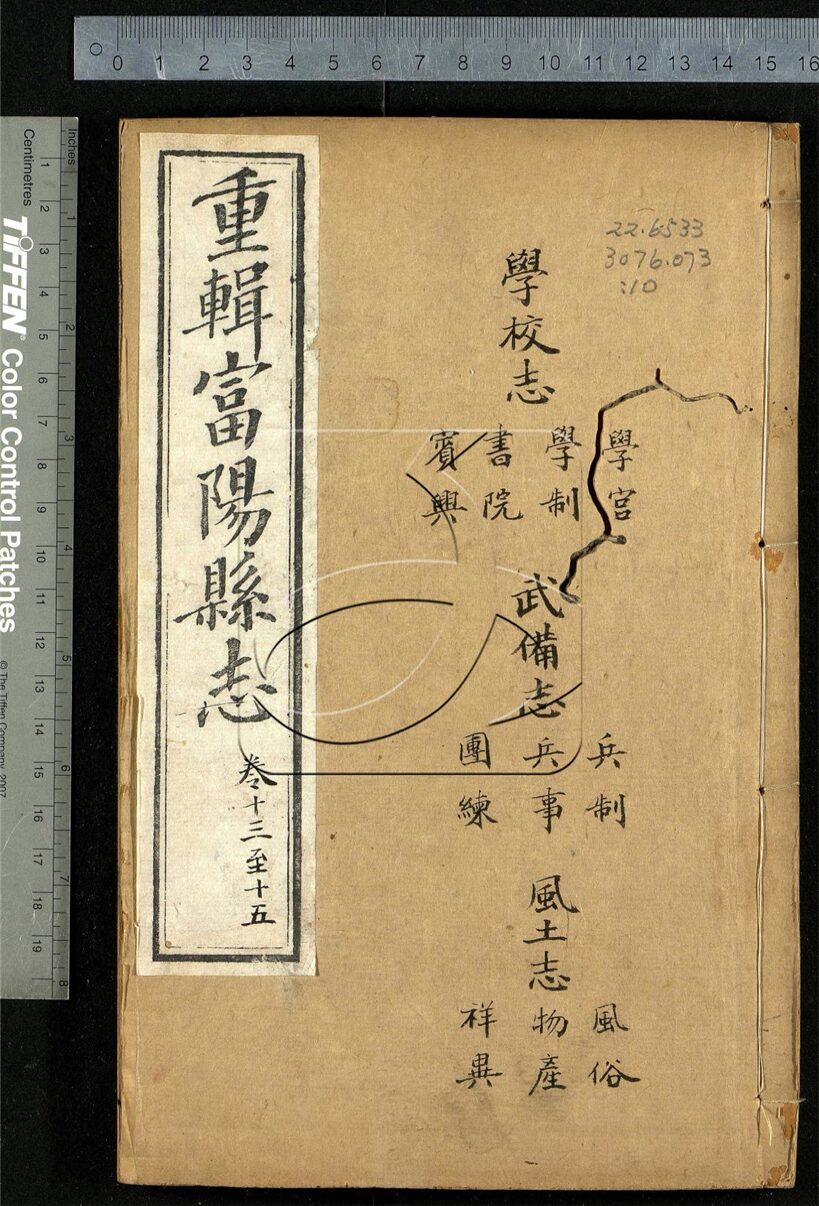 0 1 2 3 4 5 6 7 8 9 10 11 12 13 14 15 16
Inches
1 2 3 4 5 6 7 8
Centimetres
1 2 3 4 5 6 7 8 9 10 11 12 13 14 15 16 17 18 19
TIFFEN® Color Control Patches
© The Tiffen Company, 2007
22.6533
3076.073
:10
學校志
學宮
學制
書院
賓興
武備志
兵制
兵事
團練
風土志
風俗
物產
祥異
重輯富陽縣志
卷十三至十五